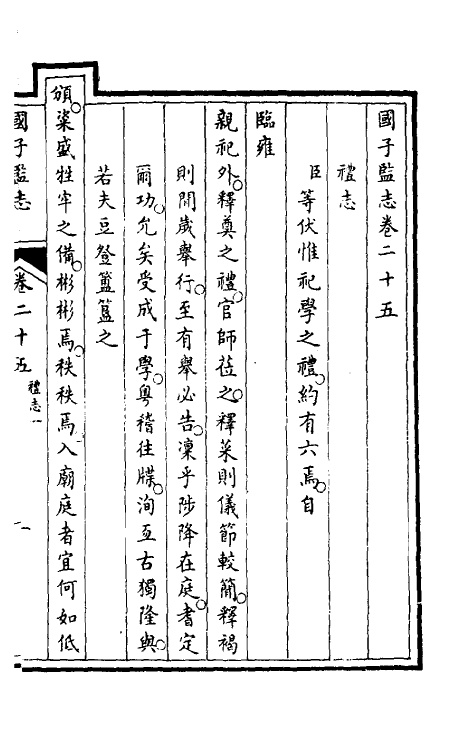 國子監志卷二十五
禮志
臣等伏惟祀學之禮約有六焉自
臨雍
親祀外釋奠之禮官師莅之釋菜則儀節較簡釋褐
則閒歲舉行至有舉必告凜乎陟降在庭耆定
爾功允矣受成于學粵稽往牒洵亙古獨隆與
若夫豆豋簠簋之
頒粢盛牲牢之備彬彬焉秩秩焉入廟庭者宜何如低
國子監志 卷二十五 禮志一 一